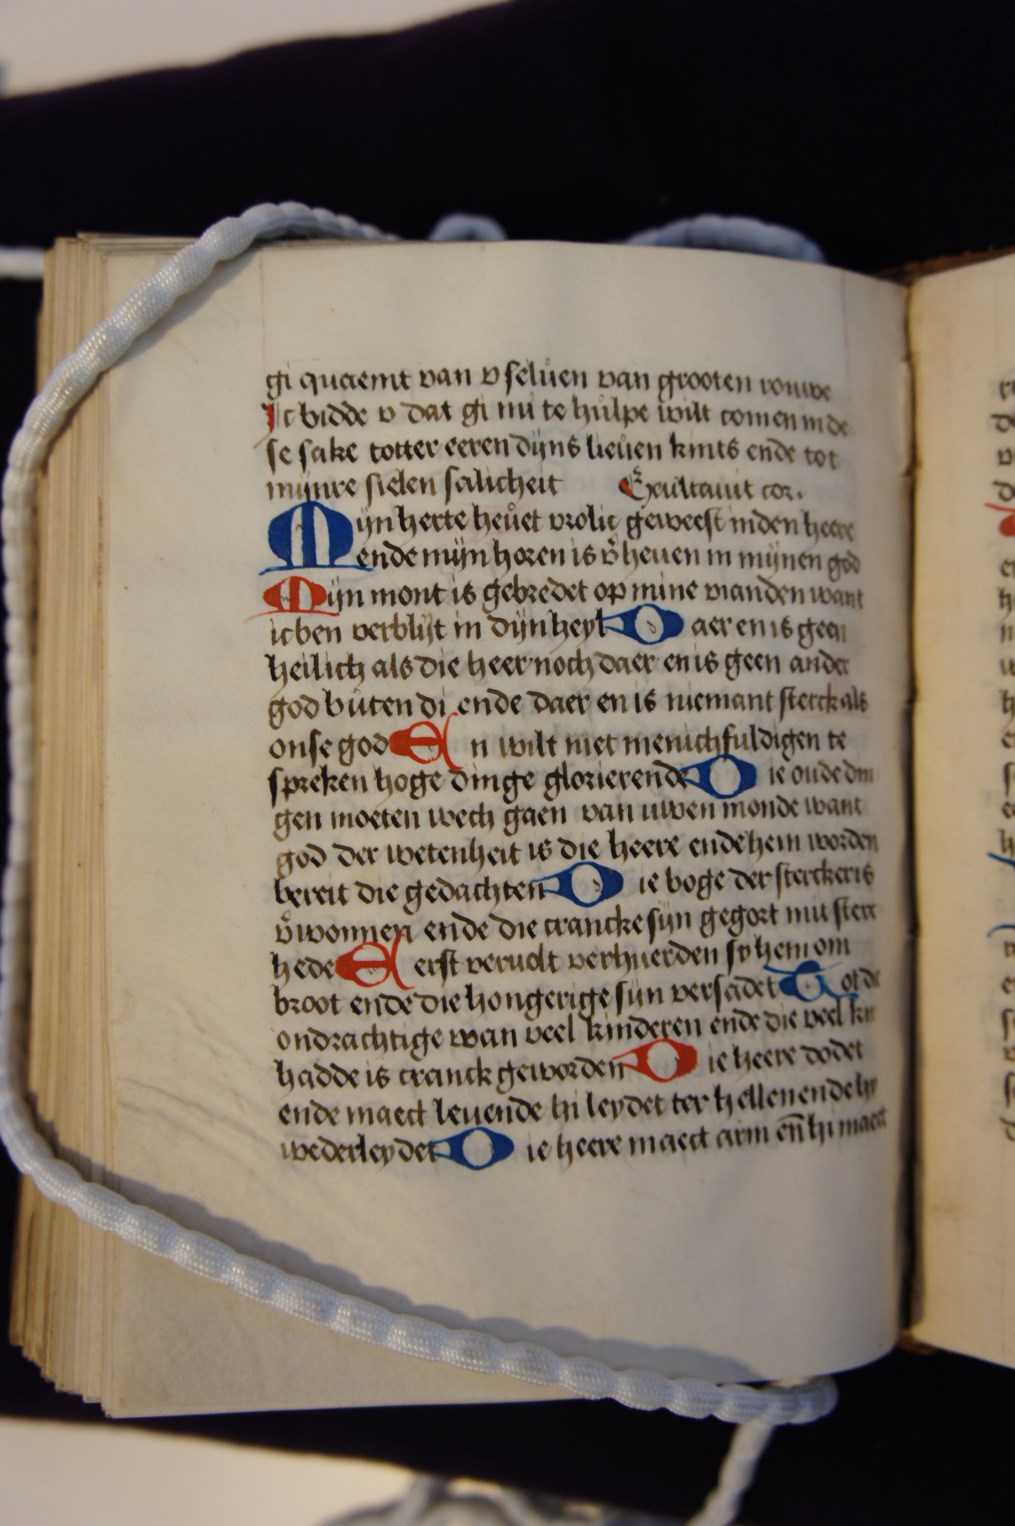 gi quaemt van v seluen van grooten rouwe
Ic bidde v dat gi mi te hulpe wilt comen in de
se sake totter eeren dijns lieuen kints ende tot
mijnre sielen salicheit Exultauit cor.
Mijn herte heuet vrolic geweest inden heere
ende mijn horen is v̄heuen in mijnen god
Mijn mont is gebredet op mine vianden want
ic ben verblijt in dijn heyl Daer en is geen
heilich als die heer noch daer en is geen ander
god buten di ende daer en is niemant sterck als
onse god En wilt niet menichfuldigen te
spreken hoge dinge glorierende Die oude din
gen moeten wech gaen van uwen monde want
god der wetenheit is die heere ende hem worden
bereit die gedachten Die boge der sterckers
v̄wonnen ende die crancke sijn gegort mit sterc
hede Eerst vervult verhuerden sy hem om
broot ende die hongerige sijn versadet Tot de
ondrachtige wan veel kinderen ende die veel kin
hadde is cranck geworden Die heere dodet
ende maect leuende hi leydet ter hellen ende hy
wederleydet Die heere maect arm en̄ hi maect